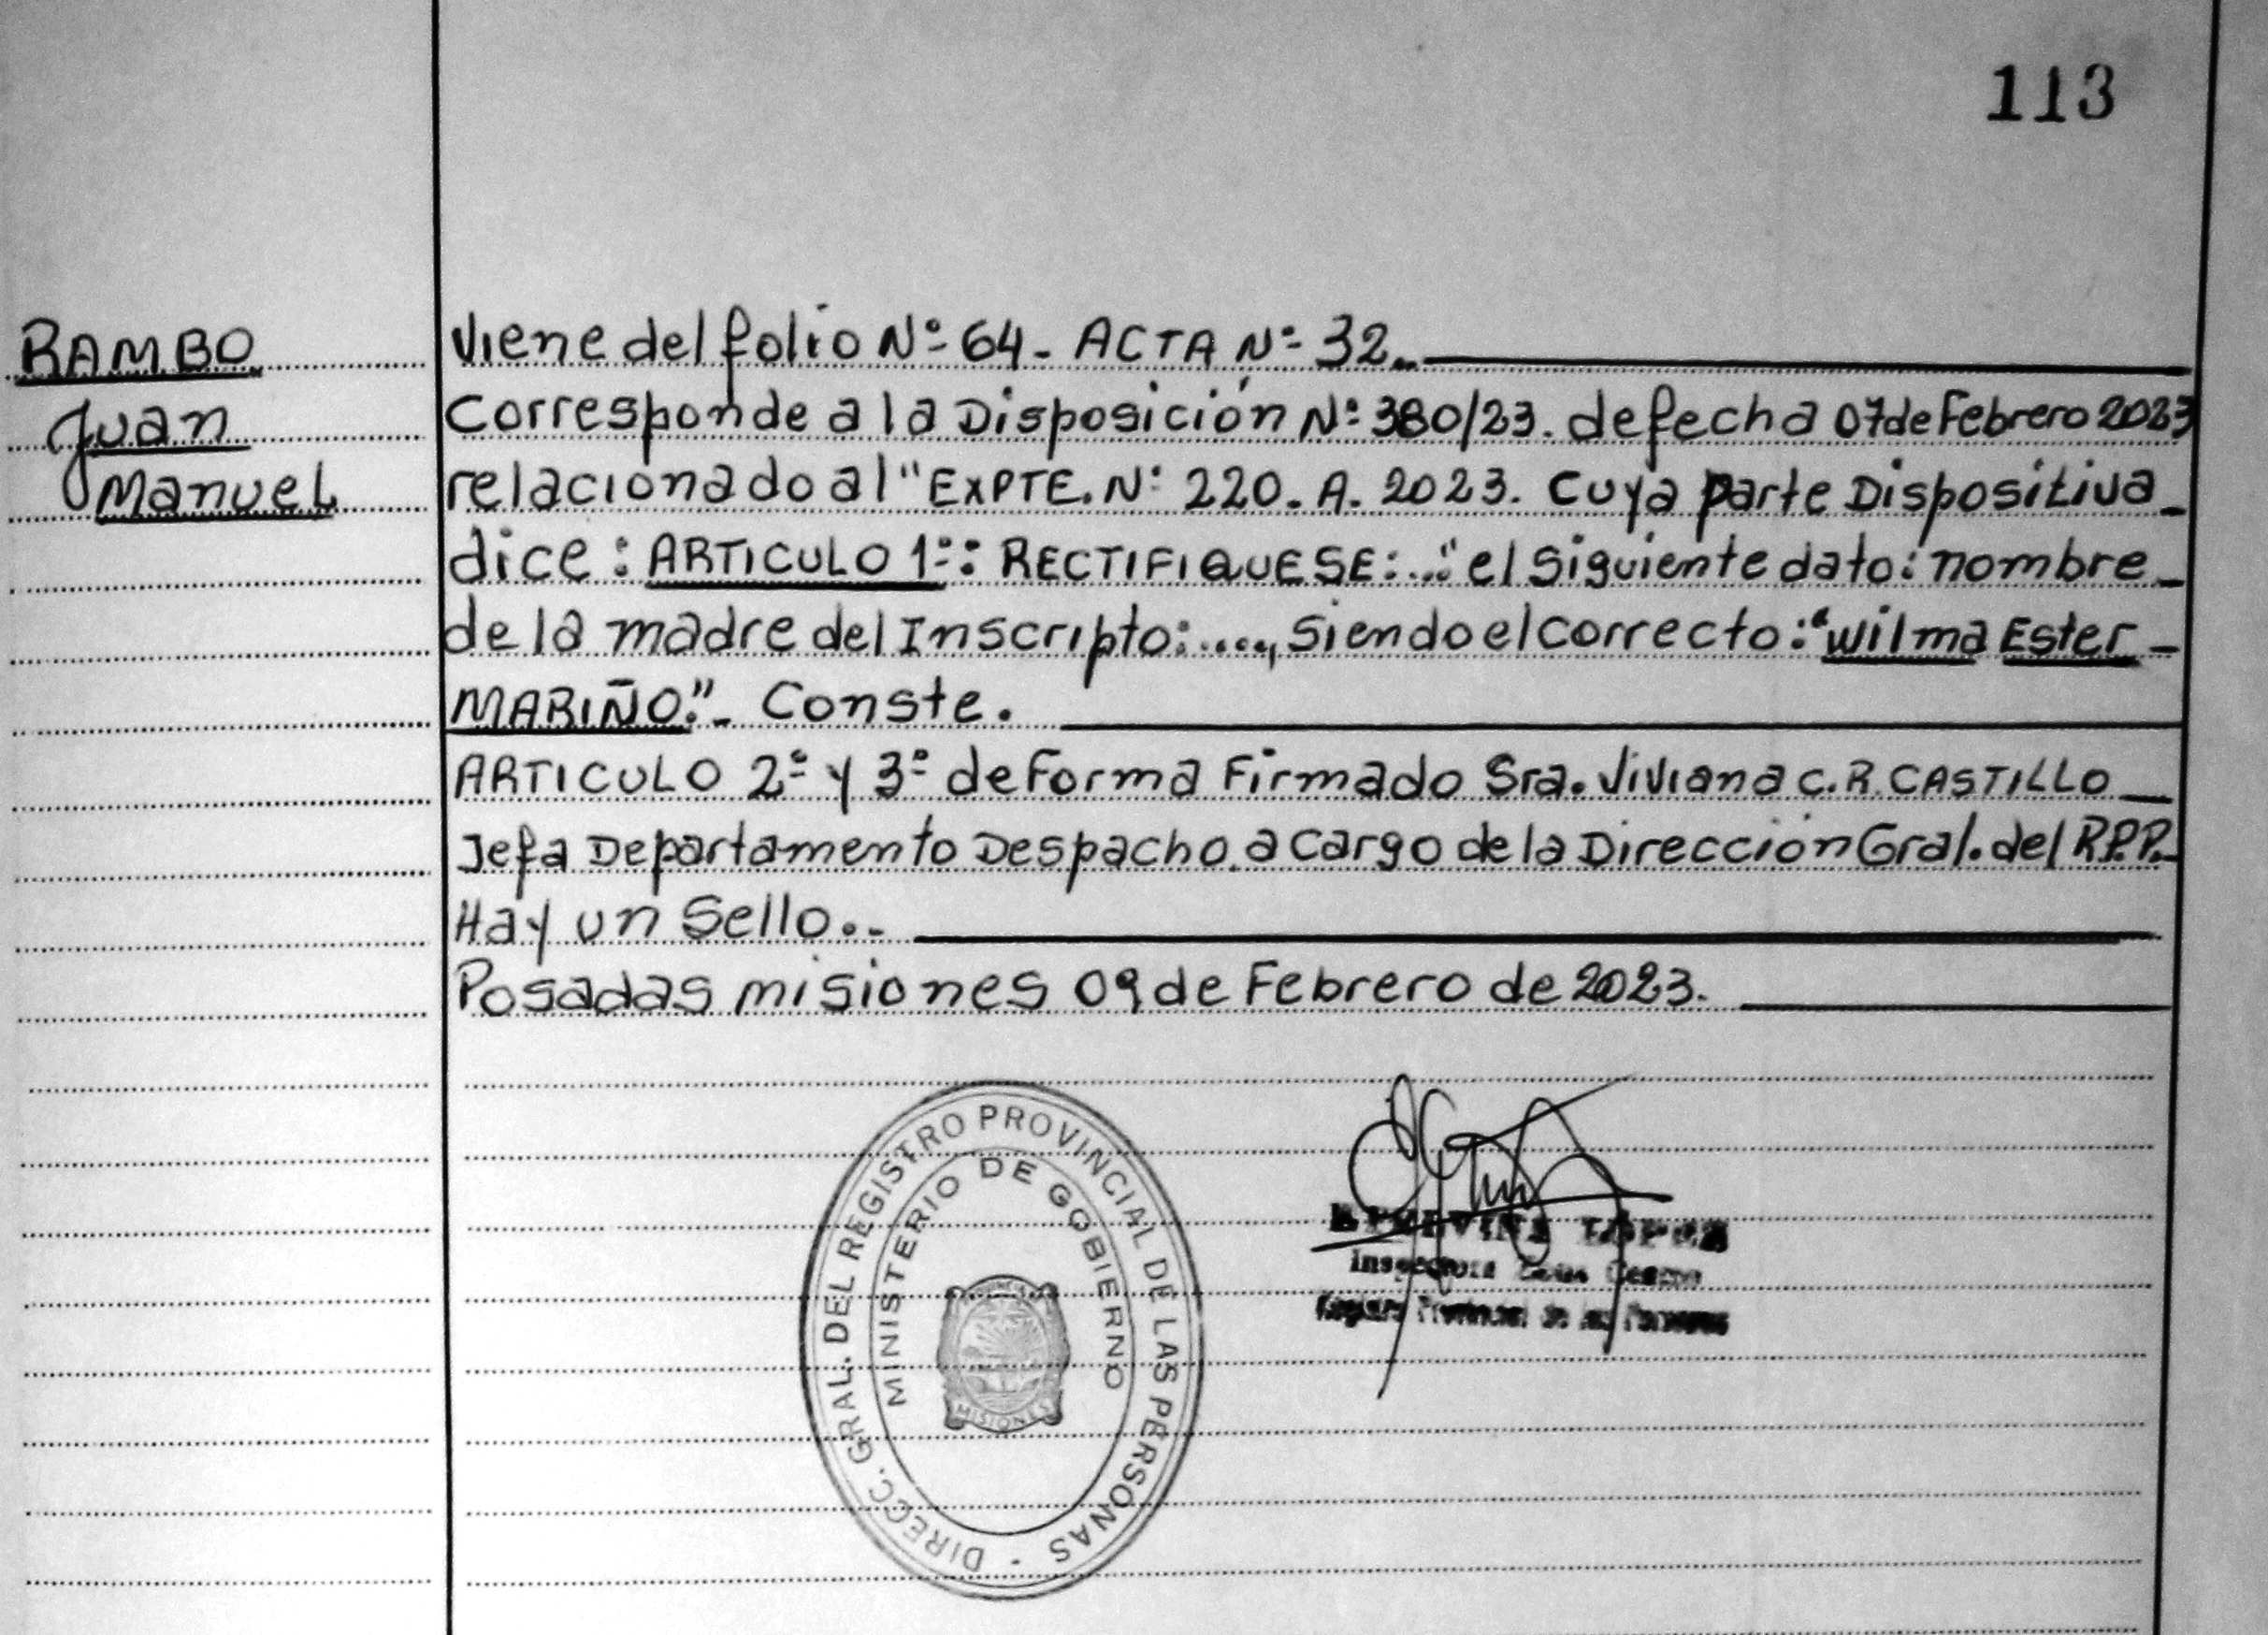 113
RAMBO
Juan
Manuel
Viene del folio Nº 64 - ACTA Nº 32.
Corresponde a la Disposición Nº 380/23. de fecha 07 de Febrero 2023
relacionado al "EXPTE. Nº 220. A. 2023. Cuya parte Dispositiva
dice: ARTICULO 1º: RECTIFIQUESE:..." el siguiente dato: nombre
de la madre del Inscripto:...., siendo el correcto: "Wilma Ester
MARIÑO."- Conste.
ARTICULO 2º y 3º de Forma Firmado Sra. Viviana C.R. CASTILLO
Jefa Departamento Despacho a cargo de la Dirección Gral. del R.P.P.
Hay un Sello.-
Posadas misiones 09 de Febrero de 2023.
DIRECC. GRAL. DEL REGISTRO PROVINCIAL DE LAS PERSONAS
MINISTERIO DE GOBIERNO
MISIONES
Registro Provincial de las Personas